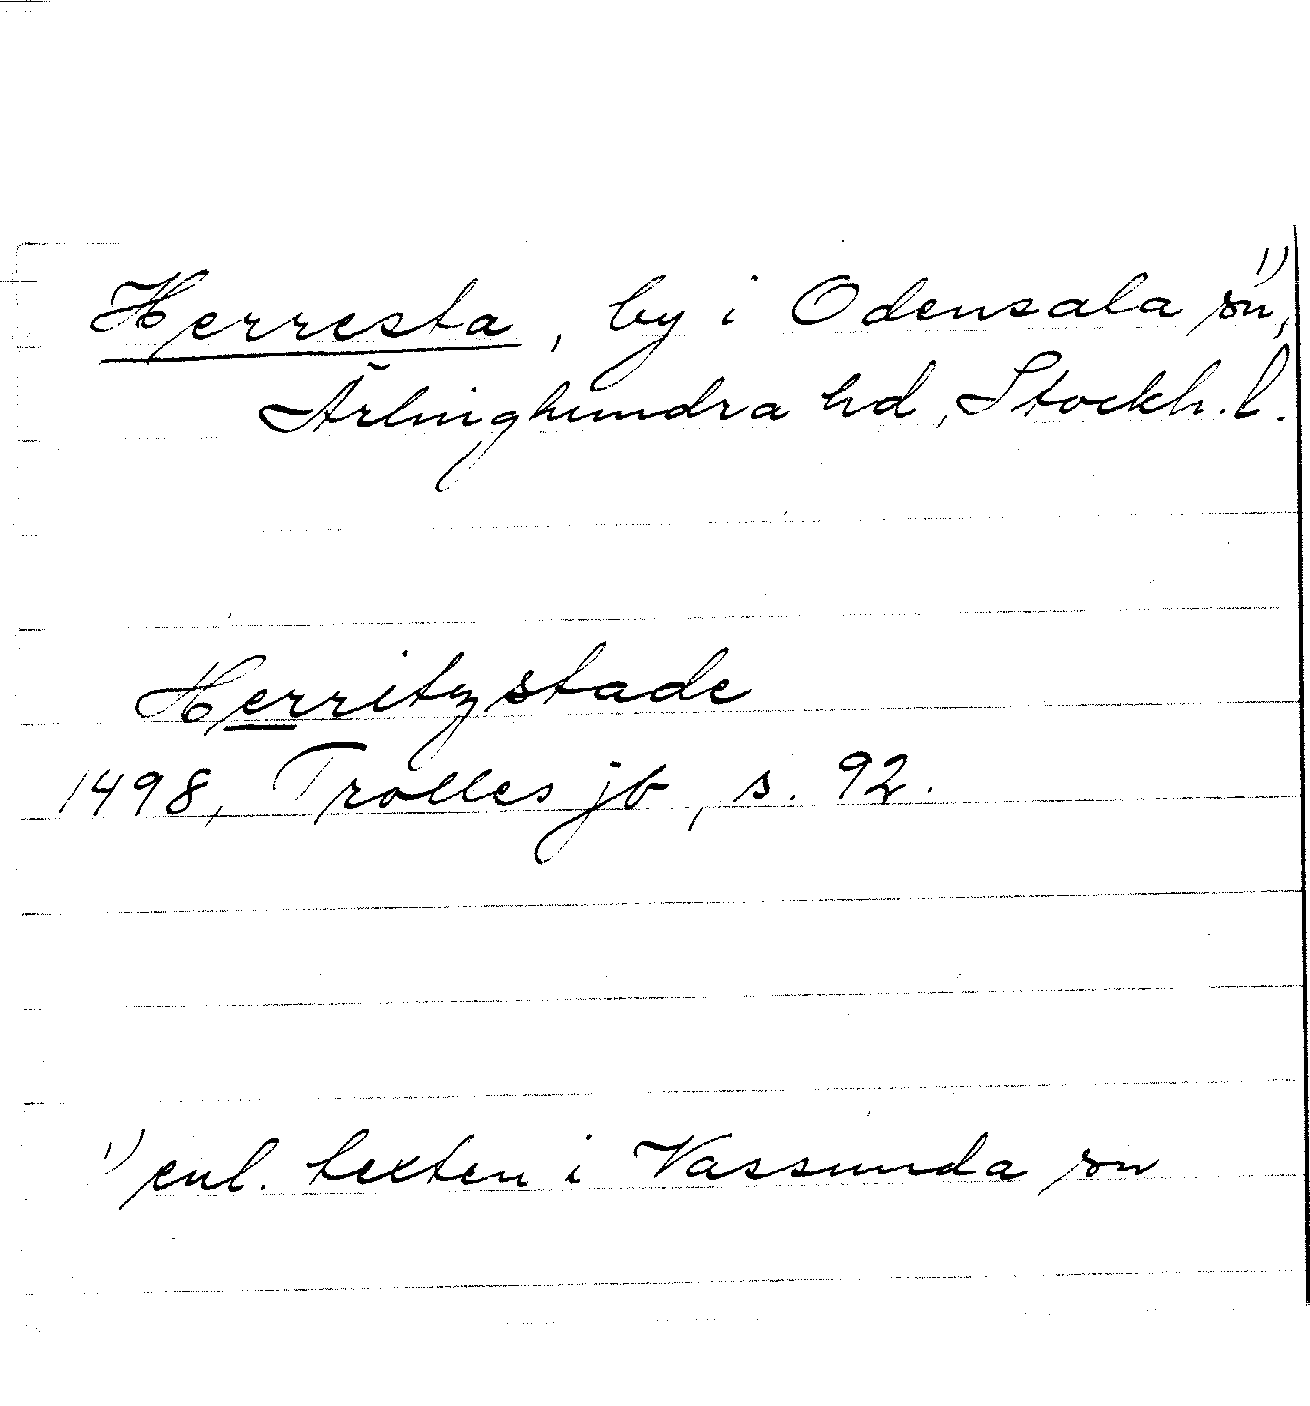 Herresta, by i Odensala sn¹⁾,
Ärlinghundra hd, Stockh. l.
Herritzstade
1498, Trolles jb, s. 92.
¹⁾ enl. texten i Vassunda sn